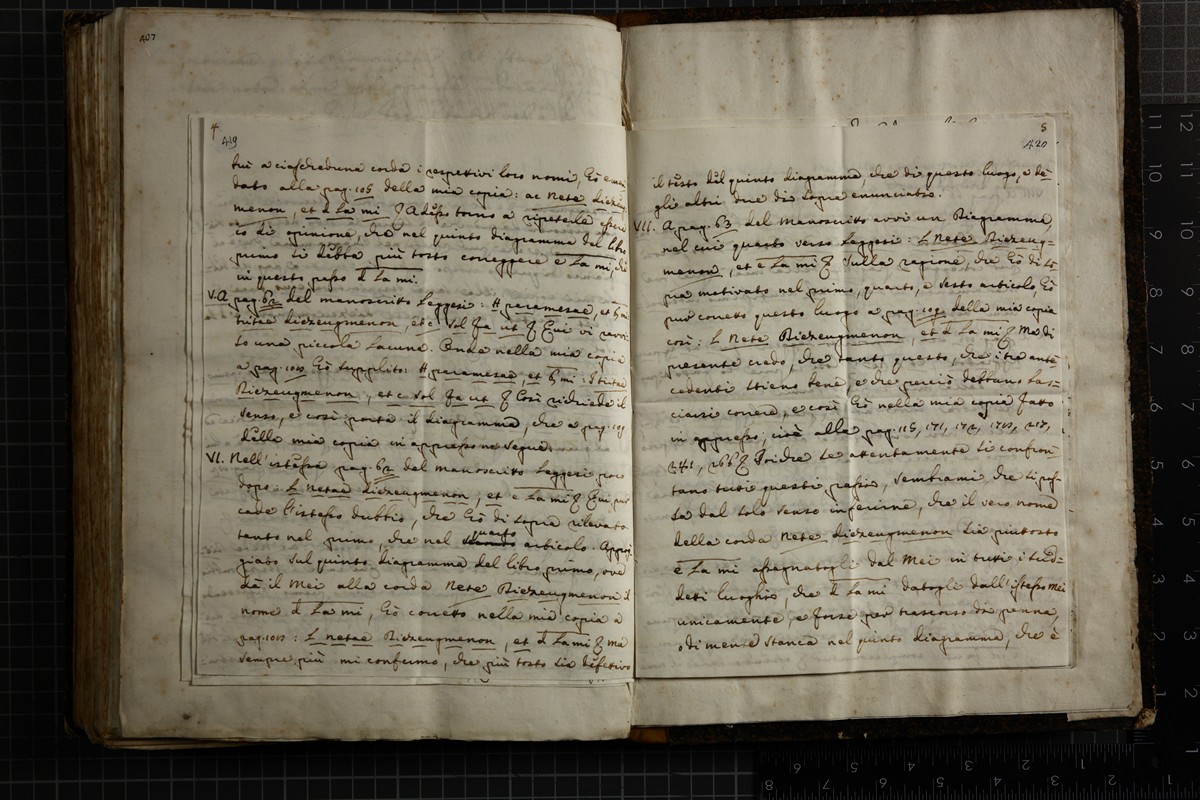 407
4
419
bui a ciascheduna corda i rispettivi loro nomi, hò emen
dato alla pag. 105 della mia copia: ac Nete diezeug
menon, et d La mi. Adesso torno a ripetere, esser
io di opinione, che nel quinto diagramma del libro
primo si debba più tosto correggere e La mi, che
in questo passo d La mi.
V. A pag. 62 del manoscritto leggesi: H paramesae, et h mi
tritae diezeugmenon, et c Sol fa ut. Qui vi ravvi
so una piccola lacuna. Onde nella mia copia
a pag. hò supplito: H paramesae, et h mi: I tritae
Diezeugmenon, et c Sol fa ut. Così richiede il
senso, e così porta il diagramma, che a pag. 109
della mia copia in appresso ne segue.
VI. Nell'istessa pag. 62 del manoscritto leggesi poco
dopo: L netae diezeugmenon, et e La mi. Qui pur
cade l'istesso dubbio, che hò di sopra rilevato
tanto nel primo, che nel quarto articolo. Appog
giato sul quinto diagramma del libro primo, ove
dà il Mei alla corda Nete Diezeugmenon il
nome d La mi, hò corretto nella mia copia a
pag. : L netae Diezeugmenon, et d La mi ma
sempre più mi confermo, che più tosto sia difettivo
5
420
il testo del quinto diagramma, che di questo luogo, e de
gli altri due di sopra enunciati.
VII. A pag. 63 del manoscritto avvi un Diagramma,
nel cui quarto verso leggesi: L Nete Diezeug=
menon, et e La mi. Sulla ragione, che hò di so
pra motivato nel primo, quarto, e sesto articolo, hò
pur corretto questo luogo a pag. 109 della mia copia
così: L Nete Diezeugmenon, et d La mi. Ma di
presente credo, che tanto questo, che i tre ante
cedenti stieno bene, e che perciò debbano las=
ciarsi correre, e così hò nella mia copia fatto
in appresso, cioè alla pag. 115, 171, 172,
Poiche se attentamente si confron
tano tutti questi passi, sembrami, che si pos
sa dal solo senso inferirne, che il vero nome
della corda Nete diezeugmenon sia piuttosto
e La mi assegnatogli dal Mei in tutti i sud=
detti luoghi, che d La mi datogli dall'istesso Mei
unicamente, e forse per trascorso di penna,
o di mente stanca nel quinto diagramma, che è